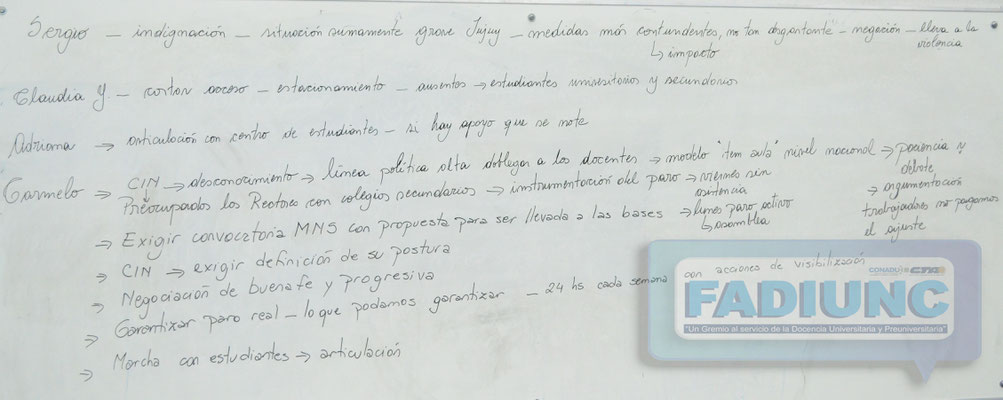 Sergio – indignación – situación sumamente grave Jujuy – medidas más contundentes, no tan desgastante – negación – lleva a la violencia
↳ impacto
Claudia Y. – cortar acceso – estacionamiento – ausentos → estudiantes universitarios y secundarios
Adriana → articulación con centro de estudiantes – si hay apoyo que se note
Carmelo → CIN → desconocimiento → línea política alta doblegar a los docentes → modelo "item aula" nivel nacional → paciencia y debate
Preocupados los Rectores con colegios secundarios → instrumentación del paro → viernes sin asistencia
→ argumentación
trabajadores no pagamos el ajuste
→ lunes paro activo
↳ asamblea
→ Exigir convocatoria MNS con propuesta para ser llevada a las bases
→ CIN → exigir definición de su postura
→ Negociación de buena fe y progresiva
→ Garantizar paro real – lo que podamos garantizar – 24 hs cada semana con acciones de visibilización
→ Marcha con estudiantes → articulación
CONADU CTA
FADIUNC
"Un Gremio al servicio de la Docencia Universitaria y Preuniversitaria"